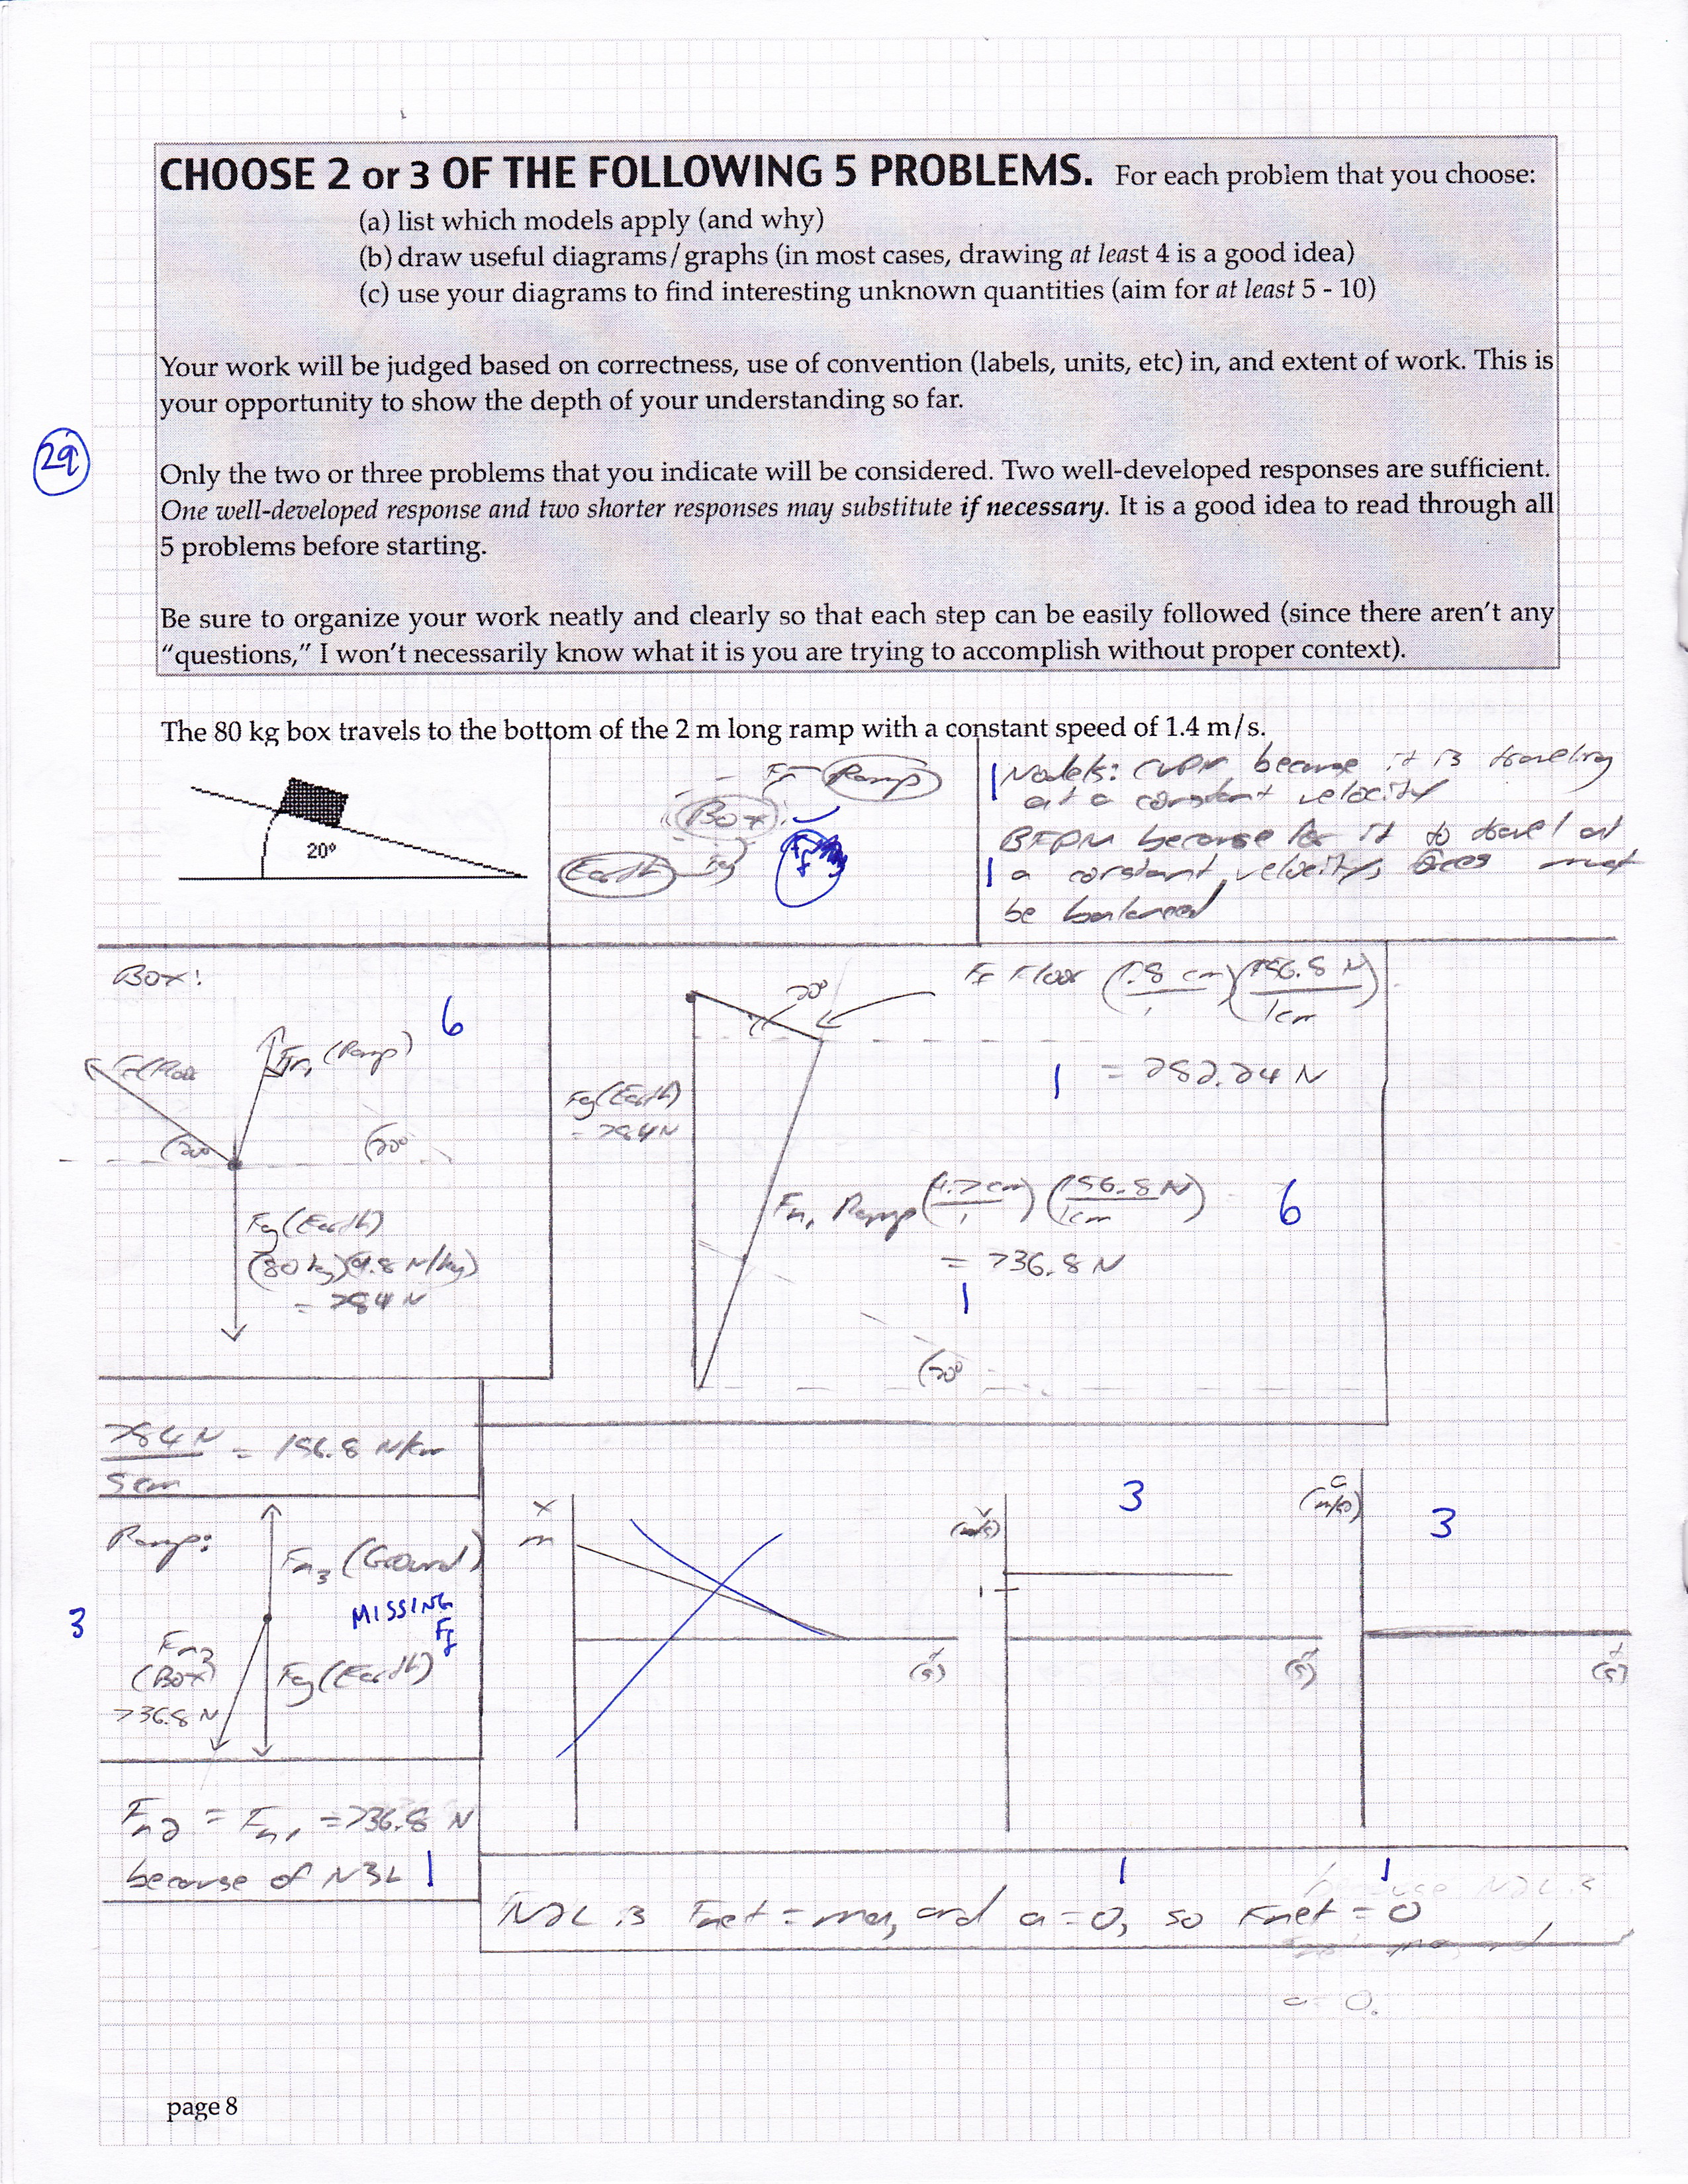 CHOOSE 2 or 3 OF THE FOLLOWING 5 PROBLEMS. For each problem that you choose:
(a) list which models apply (and why)
(b) draw useful diagrams/graphs (in most cases, drawing at least 4 is a good idea)
(c) use your diagrams to find interesting unknown quantities (aim for at least 5 - 10)
Your work will be judged based on correctness, use of convention (labels, units, etc) in, and extent of work. This is
your opportunity to show the depth of your understanding so far.
29
Only the two or three problems that you indicate will be considered. Two well-developed responses are sufficient.
One well-developed response and two shorter responses may substitute if necessary. It is a good idea to read through all
5 problems before starting.
Be sure to organize your work neatly and clearly so that each step can be easily followed (since there aren't any
"questions," I won't necessarily know what it is you are trying to accomplish without proper context).
The 80 kg box travels to the bottom of the 2 m long ramp with a constant speed of 1.4 m/s.
20°
Fn Ramp
Box
Earth Fg
Ff
1 Models: CVPM because it is traveling
at a constant velocity
BFPM because for it to travel at
1 a constant velocity, forces must
be balanced
Box:
6
Fn, (Ramp)
20°
20°
Fg (Earth)
(80 kg)(9.8 N/kg)
= 784 N
20°
Ff Floor (1.8 cm / 1)(156.8 N / 1cm)
1 = 282.24 N
Fg (Earth)
= 784 N
Fn, Ramp (4.7 cm / 1)(156.8 N / 1cm)
6
= 736.8 N
1
20°
784 N / 5 cm = 156.8 N/cm
Ramp:
Fn3 (Ground)
MISSING
Ff
3
Fn2
(Box)
736.8 N
Fg (Earth)
x
m
t
(s)
3
v
(m/s)
1
t
(s)
a
3
t
(s)
Fn2 = Fn1 = 736.8 N
because of N3L 1
1 1
N2L is Fnet = ma, and a = 0, so Fnet = 0
because N2L is
a = 0.
page 8